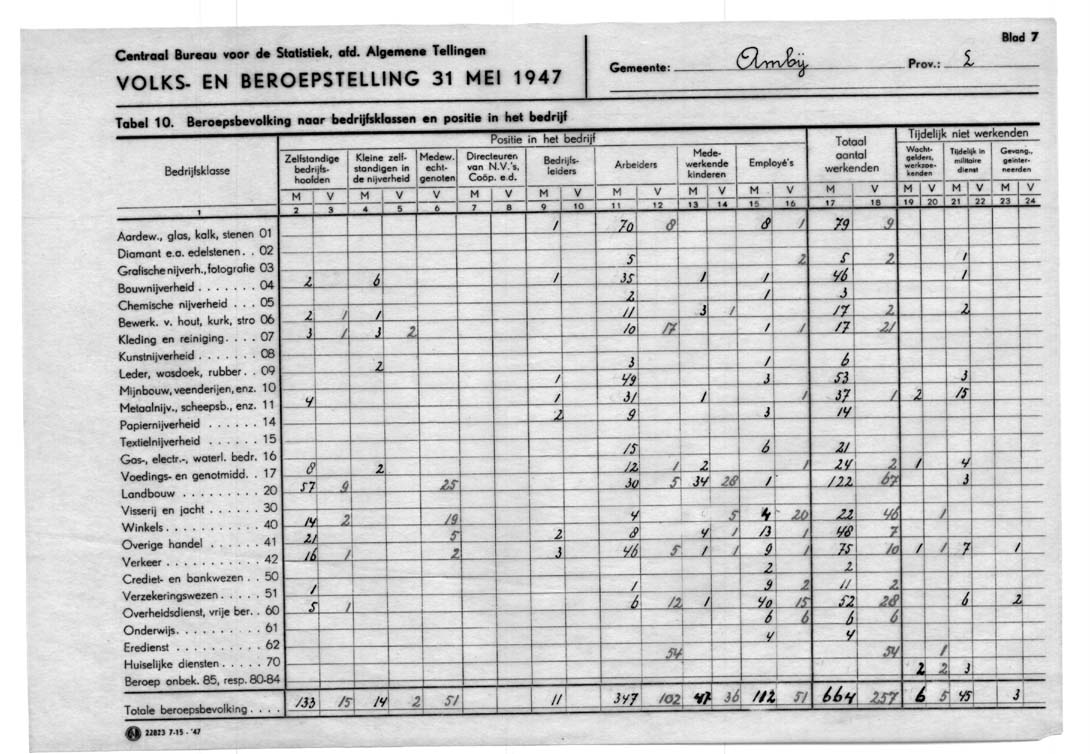 Centraal Bureau voor de Statistiek, afd. Algemene Tellingen
VOLKS- EN BEROEPSTELLING 31 MEI 1947
Blad 7
Gemeente: Amby Prov.: L
Tabel 10. Beroepsbevolking naar bedrijfsklassen en positie in het bedrijf
Bedrijfsklasse
Positie in het bedrijf
Totaal aantal werkenden
Tijdelijk niet werkenden
Zelfstandige bedrijfs-hoofden
Kleine zelf-standigen in de nijverheid
Medew. echt-genoten
Directeuren van N.V.'s, Coöp. e.d.
Bedrijfs-leiders
Arbeiders
Mede-werkende kinderen
Employé's
Wacht-gelders, werkzoe-kenden
Tijdelijk in militaire dienst
Gevang., geinter-neerden
M V M V V M V M V M V M V M V M V M V M V M V
1 2 3 4 5 6 7 8 9 10 11 12 13 14 15 16 17 18 19 20 21 22 23 24
Aardew., glas, kalk, stenen 01 1 70 8 8 1 79 9
Diamant e.a. edelstenen . . 02
Grafische nijverh., fotografie 03 5 2 5 2 1
Bouwnijverheid . . . . . . 04 2 6 1 35 1 1 46 1
Chemische nijverheid . . . 05 2 1 3
Bewerk. v. hout, kurk, stro 06 2 1 1 11 3 1 17 2 2
Kleding en reiniging. . . . 07 3 1 3 2 10 17 1 1 17 21
Kunstnijverheid . . . . . . 08
Leder, wasdoek, rubber . . 09 2 3 1 6
Mijnbouw, veenderijen, enz. 10 1 49 3 53 3
Metaalnijv., scheepsb., enz. 11 4 1 31 1 1 37 1 2 15
Papiernijverheid . . . . . . 14 2 9 3 14
Textielnijverheid . . . . . 15
Gas-, electr.-, waterl. bedr. 16 15 6 21
Voedings- en genotmidd. . 17 8 2 12 1 2 1 24 2 1 4
Landbouw . . . . . . . . . 20 57 9 25 30 5 34 28 1 122 67 3
Visserij en jacht . . . . . 30
Winkels . . . . . . . . . . 40 14 2 19 4 5 4 20 22 46 1
Overige handel . . . . . . 41 21 5 2 8 4 1 13 1 48 7
Verkeer . . . . . . . . . . 42 16 1 2 3 46 5 1 1 9 1 75 10 1 1 7 1
Crediet- en bankwezen . . 50 2 2
Verzekeringswezen . . . . . 51 1 1 9 2 11 2
Overheidsdienst, vrije ber. . 60 5 1 6 12 1 40 15 52 28 6 2
Onderwijs. . . . . . . . . 61 6 6 6 6
Eredienst . . . . . . . . . 62 4 4
Huiselijke diensten . . . . . 70 54 54 1
Beroep onbek. 85, resp. 80-84 2 2 3
Totale beroepsbevolking . . . . 133 15 14 2 51 11 347 102 47 36 112 51 664 257 6 5 45 3
22823 7-15 - '47